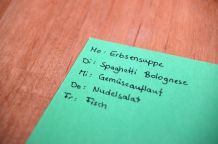 Mo: Erbsensuppe
Di: Spaghetti Bolognese
Mi: Gemüseauflauf
Do: Nudelsalat
Fr: Fisch